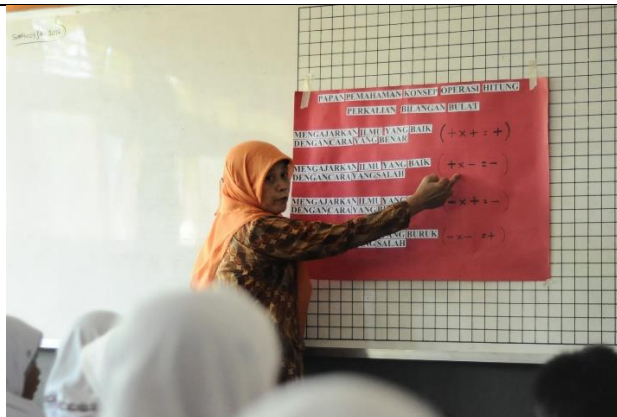 PAPAN PEMAHAMAN KONSEP OPERASI HITUNG
PERKALIAN BILANGAN BULAT
MENGAJARKAN ILMU YANG BAIK
DENGANCARA YANG BENAR
(+ x + = +)
MENGAJARKAN ILMU YANG BAIK
DENGANCARA YANGSALAH
(+ x - = -)
MENGAJARKAN ILMU YANG
DENGANCARA YANG
(- x + = -)
BURUK
SALAH
(- x - = +)